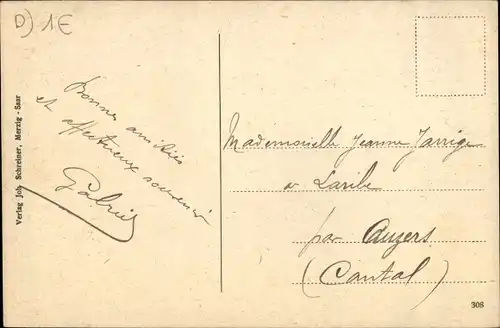 D) 1€
Bonnes amitiés
et affectueux souvenir
Gabriel
Verlag Joh. Schreiner, Merzig - Saar
Mademoiselle Jeanne Jarrige
a Laribe
par Auzers
(Cantal)
308